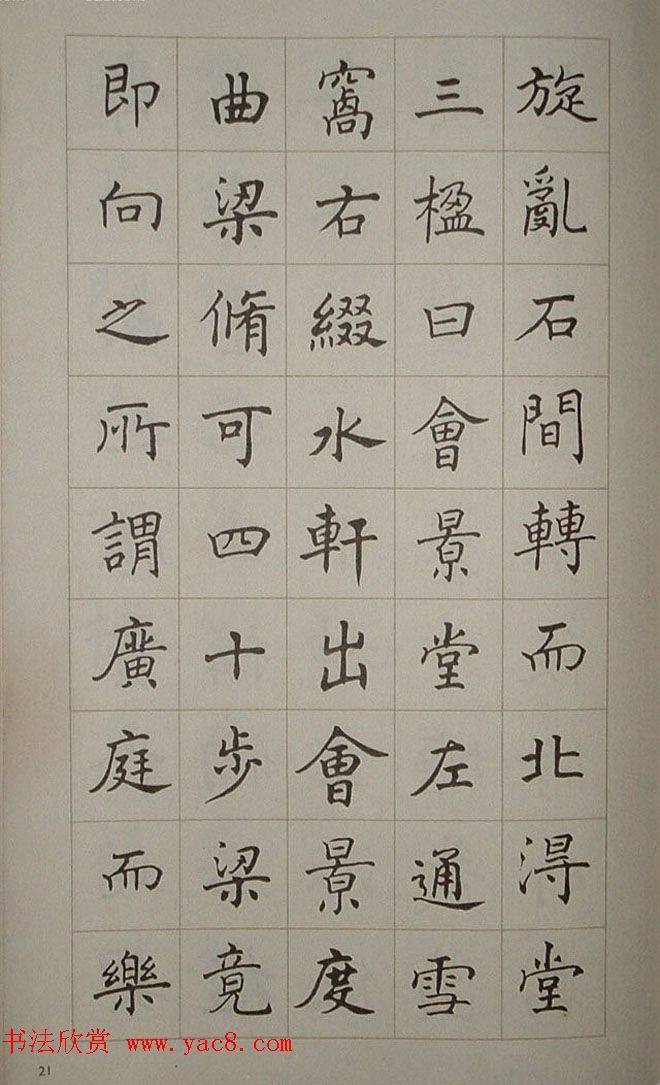 旋亂石間轉而北淂堂
三楹曰會景堂左通雪
窩右綴水軒出會景度
曲梁脩可四十步梁竟
即向之所謂廣庭而樂
书法欣赏 www.yac8.com
21